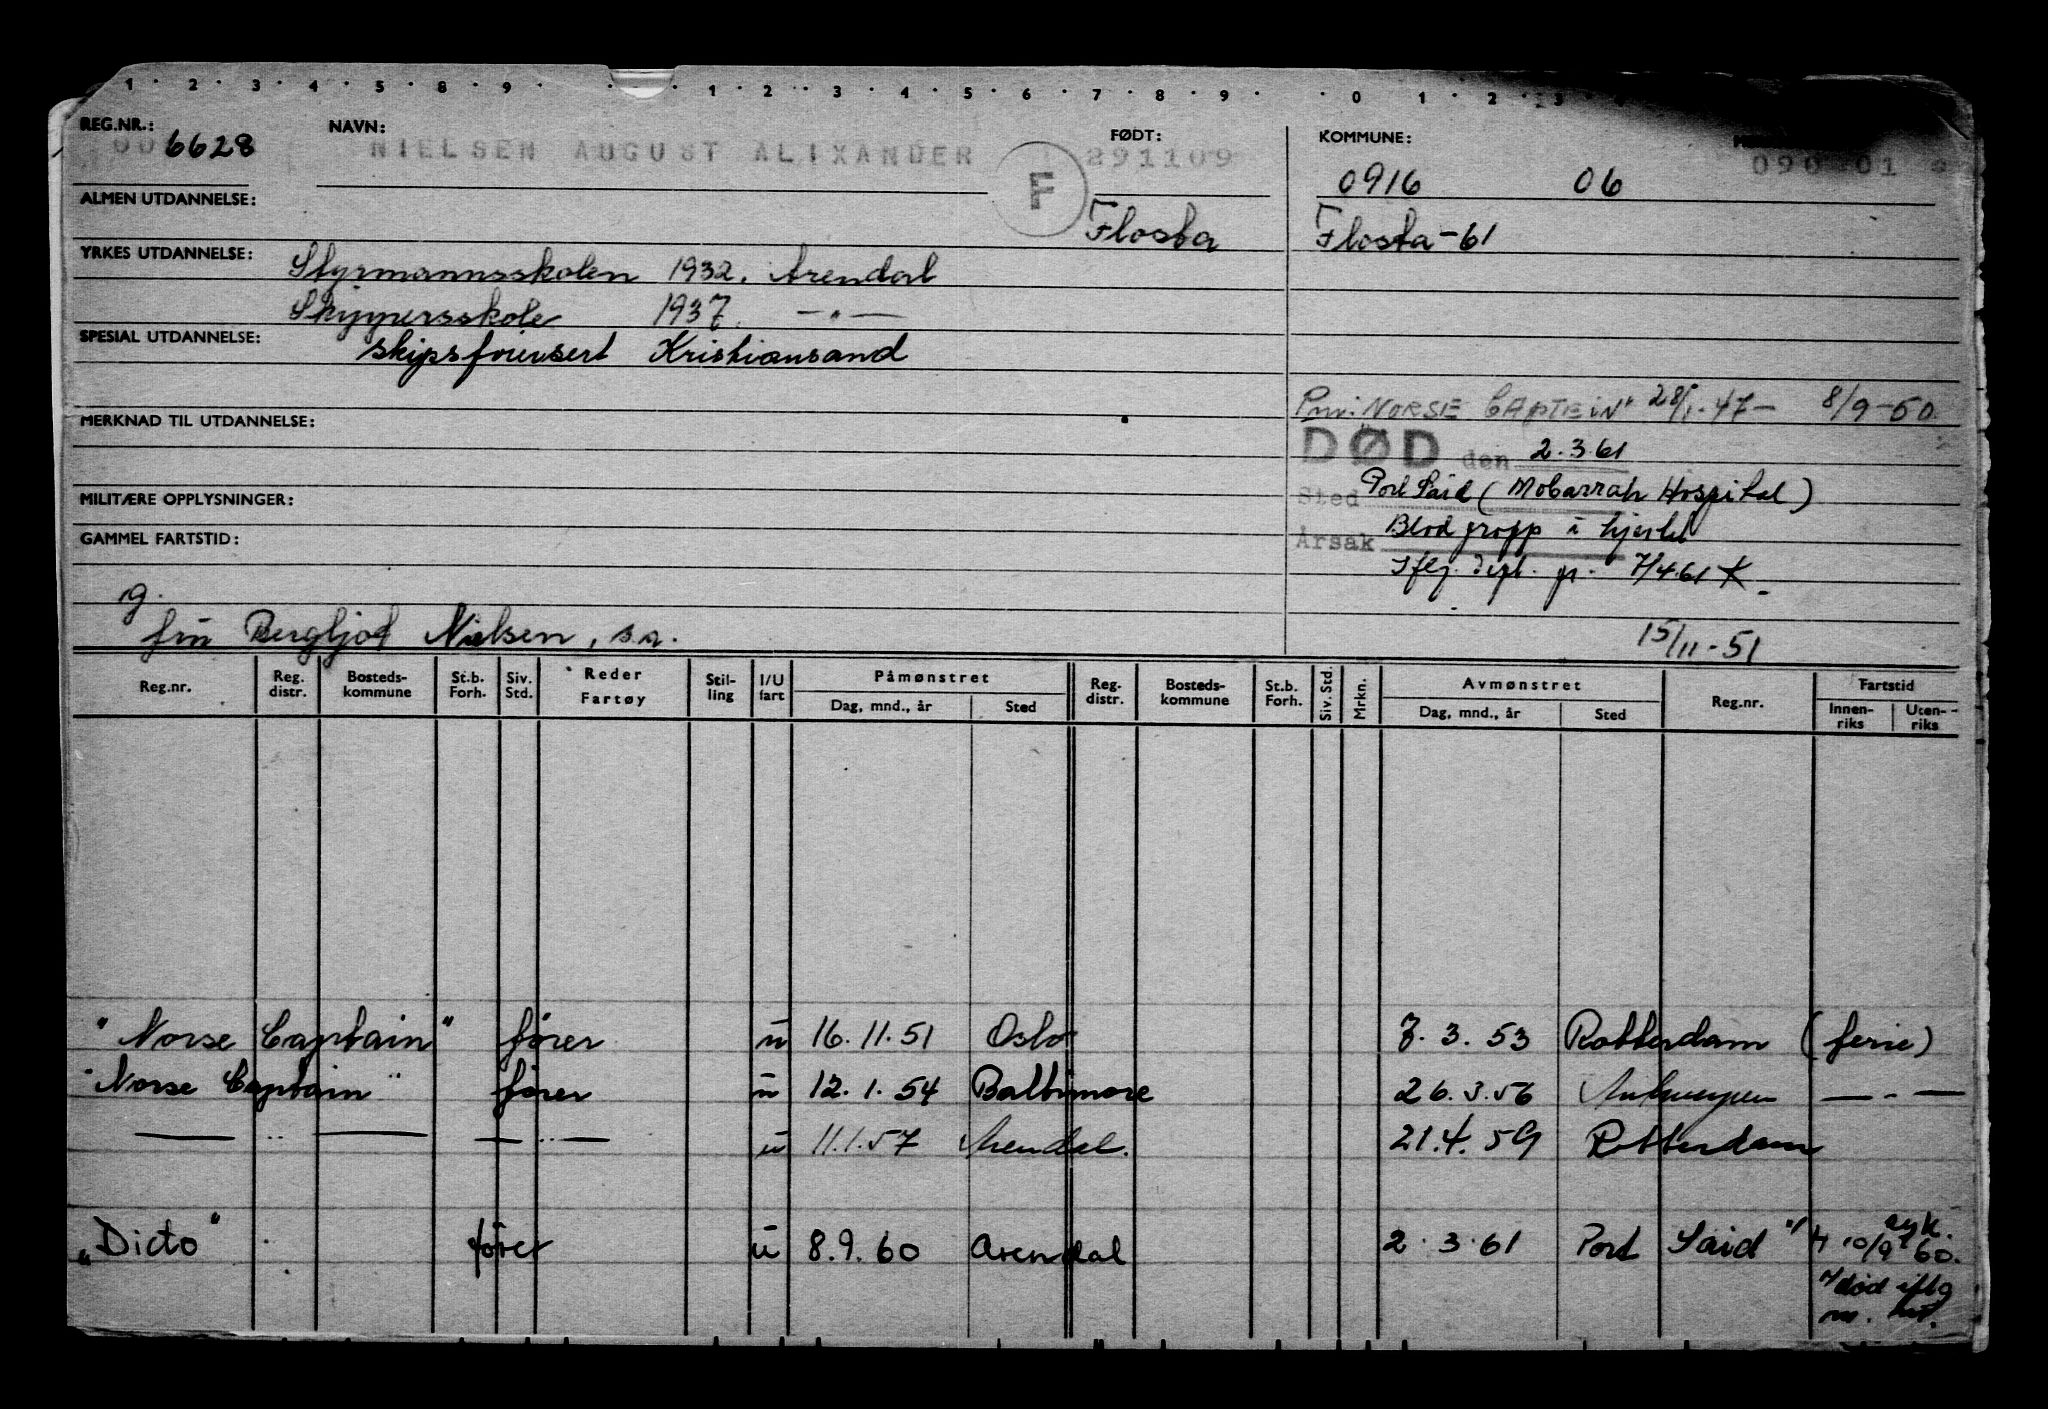 1 2 3 4 5 8 9 1 2 3 4 5 6 7 8 9 0 1 2 3
REG.NR.: 6628 NAVN: NIELSEN AUGUST ALIXANDER F FØDT: 291109 KOMMUNE: 0916 06
ALMEN UTDANNELSE: Flosta Flosta-61
YRKES UTDANNELSE: Styrmannsskolen 1932. Arendal
Skippersskole 1937. — " —
SPESIAL UTDANNELSE: skipsførersert Kristiansand
"NORSE CAPTEIN" 28/1-47 - 8/9-50
MERKNAD TIL UTDANNELSE:
DØD den 2.3.61
MILITÆRE OPPLYSNINGER: Sted Port Said (Mobarrah Hospital)
GAMMEL FARTSTID: Årsak Blodpropp i hjertet
7/4 61
g.
fru Bergljot Nielsen, s.a. 15/11-51
Reg.nr. Reg. distr. Bosteds-kommune St.b. Forh. Siv. Std. Reder Fartøy Stil-ling I/U fart Påmønstret Dag, mnd., år Sted Reg. distr. Bosteds-kommune St.b. Forh. Siv. Std. Mrkn. Avmønstret Dag, mnd., år Sted Reg.nr. Fartstid Innen-riks Uten-riks
"Norse Captain" fører u 16.11.51 Oslo 7.3.53 Rotterdam (ferie)
"Norse Captain" fører u 12.1.54 Baltimore 26.3.56 Antwerpen — " —
— " — — " — u 11.1.57 Arendal. 21.4.59 Rotterdam
"Dicto" fører u 8.9.60 Arendal 2.3.61 Port Said 10/9 60.
død